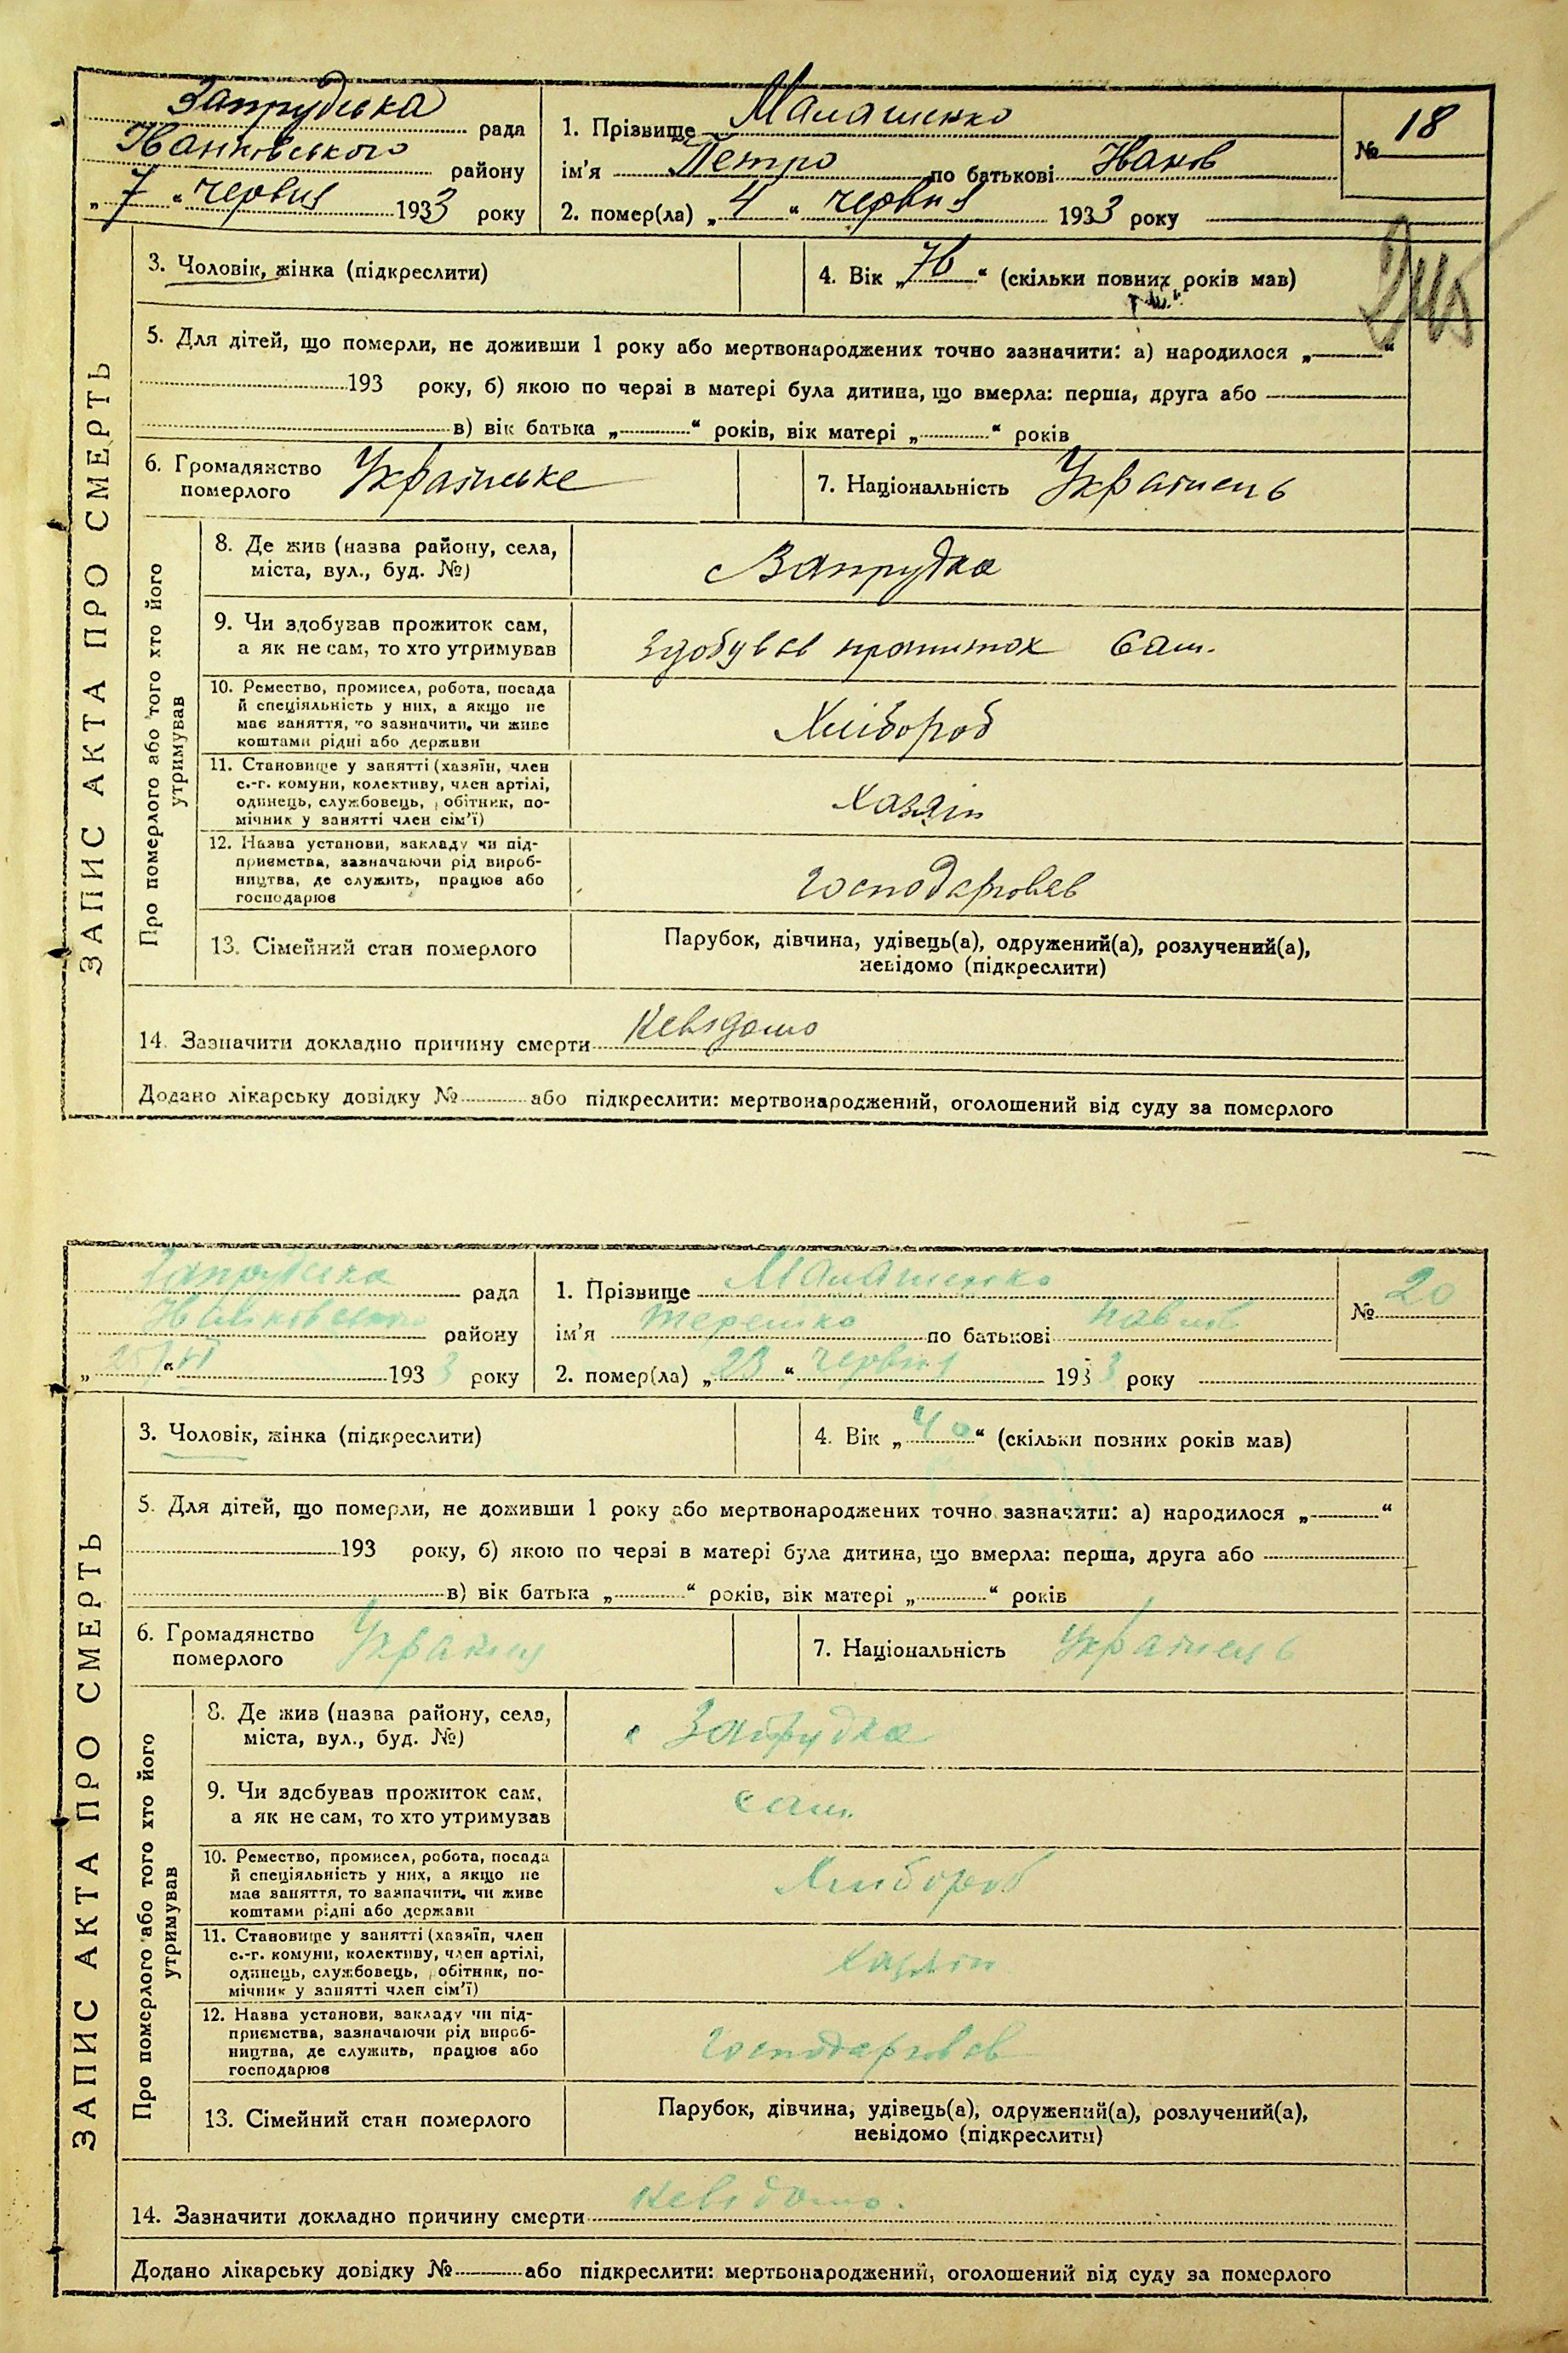 ЗАПИС АКТА ПРО СМЕРТЬ
Запрудська рада
Іванківського району
„7“ червня 1933 року
1. Прізвище Малашенко
ім'я Петро по батькові Іванов
№ 18
2. помер(ла) „4“ червня 1933 року
3. Чоловік, жінка (підкреслити)
4. Вік „76“ (скільки повних років мав)
5. Для дітей, що померли, не доживши 1 року або мертвонароджених точно зазначити: а) народилося „ “
193 року, б) якою по черзі в матері була дитина, що вмерла: перша, друга або
в) вік батька „ “ років, вік матері „ “ років
6. Громадянство померлого Українське
7. Національність Українець
Про померлого або того хто його утримував
8. Де жив (назва району, села,
міста, вул., буд. №)
Запрудка
9. Чи здобував прожиток сам,
а як не сам, то хто утримував
здобував прожиток сам.
10. Ремество, промисел, робота, посада
й спеціяльність у них, а якщо не
має заняття, то зазначити, чи живе
коштами рідні або держави
Хлібороб
11. Становище у занятті (хазяїн, член
с.-г. комуни, колективу, член артілі,
одинець, службовець, робітник, по-
мічник у занятті член сім'ї)
хазяїн
12. Назва установи, закладу чи під-
приємства, зазначаючи рід вироб-
ництва, де служить, працює або
господарює
господарював
13. Сімейний стан померлого
Парубок, дівчина, удівець(а), одружений(а), розлучений(а),
невідомо (підкреслити)
14. Зазначити докладно причину смерти невідомо
Додано лікарську довідку № або підкреслити: мертвонароджений, оголошений від суду за померлого
ЗАПИС АКТА ПРО СМЕРТЬ
Запрудська рада
Іванковського району
„25“ VI 1933 року
1. Прізвище Малашенко
ім'я Терешко по батькові Павлов
№ 20
2. помер(ла) „23“ червня 1933 року
3. Чоловік, жінка (підкреслити)
4. Вік „40“ (скільки повних років мав)
5. Для дітей, що померли, не доживши 1 року або мертвонароджених точно зазначити: а) народилося „ “
193 року, б) якою по черзі в матері була дитина, що вмерла: перша, друга або
в) вік батька „ “ років, вік матері „ “ років
6. Громадянство померлого
7. Національність Українець
Про померлого або того хто його утримував
8. Де жив (назва району, села,
міста, вул., буд. №)
с Запрудка
9. Чи здобував прожиток сам,
а як не сам, то хто утримував
сам.
10. Ремество, промисел, робота, посада
й спеціяльність у них, а якщо не
має заняття, то зазначити, чи живе
коштами рідні або держави
Хлибороб
11. Становище у занятті (хазяїн, член
с.-г. комуни, колективу, член артілі,
одинець, службовець, робітник, по-
мічник у занятті член сім'ї)
хазяїн
12. Назва установи, закладу чи під-
приємства, зазначаючи рід вироб-
ництва, де служить, працює або
господарює
господарював
13. Сімейний стан померлого
Парубок, дівчина, удівець(а), одружений(а), розлучений(а),
невідомо (підкреслити)
14. Зазначити докладно причину смерти невідомо.
Додано лікарську довідку № або підкреслити: мертвонароджений, оголошений від суду за померлого